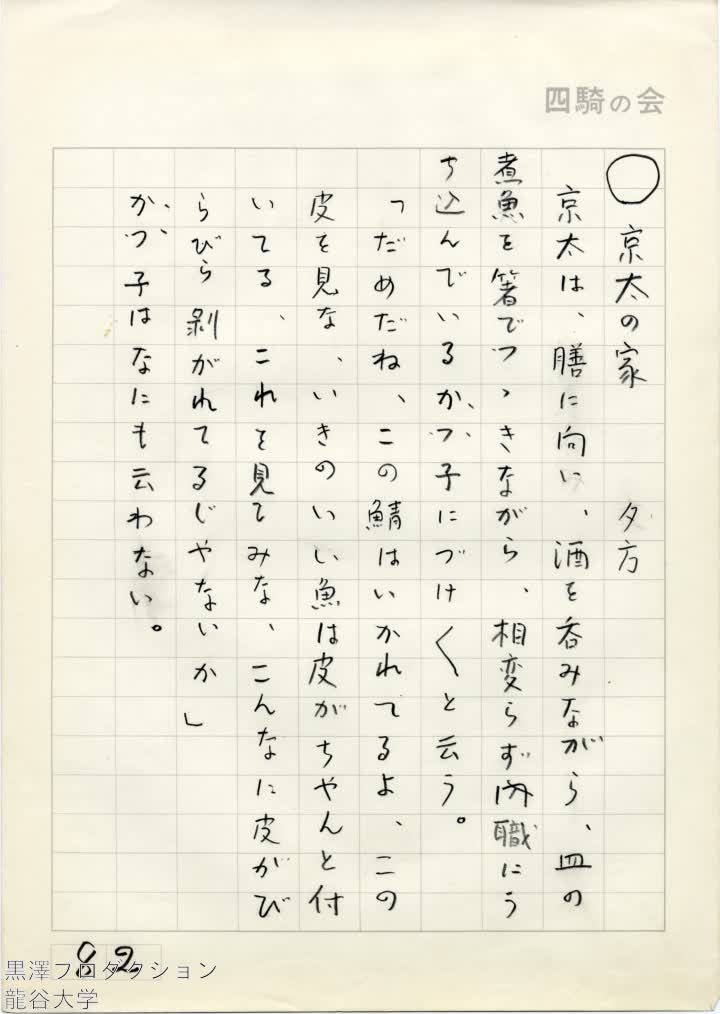 四騎の会
○ 京太の家　　夕方
京太は、膳に向い、酒を呑みながら、皿の
煮魚を箸でつゝきながら、相変らず内職にう
ち込んでいるかつ子にづけ〱と云う。
「だめだね、この鯖はいかれてるよ、この
皮を見な、いきのいい魚は皮がちゃんと付
いてる、これを見てみな、こんなに皮がび
らびら剥がれてるじゃないか」
かつ子はなにも云わない。
82
黒澤プロダクション
龍谷大学